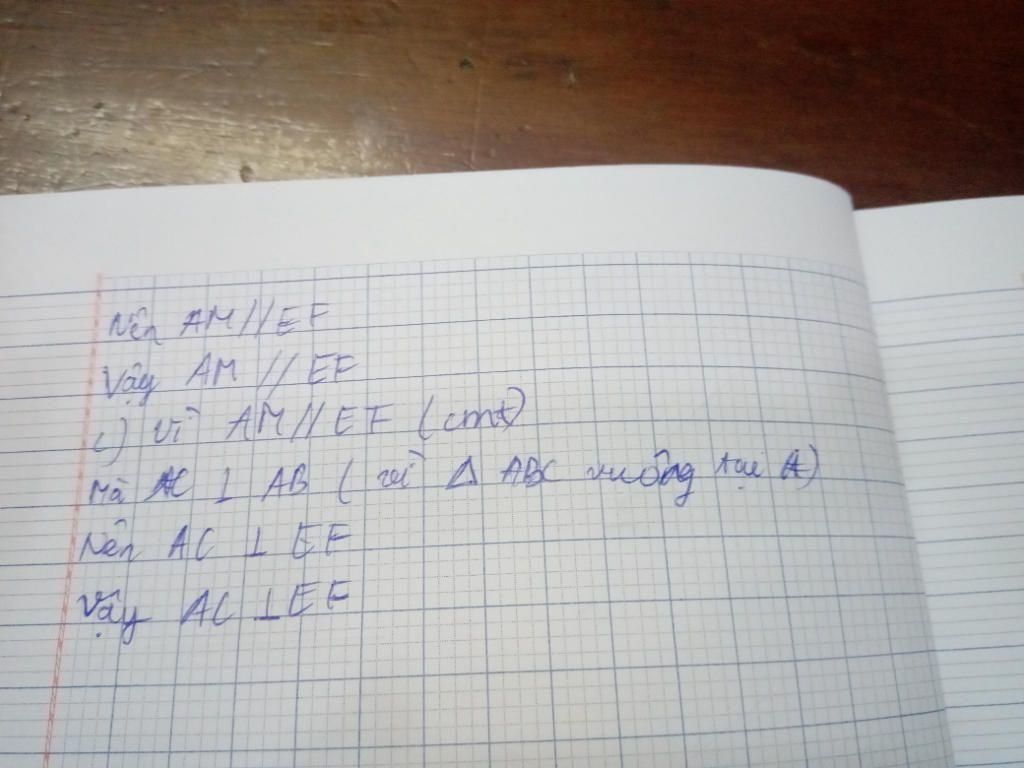 Nên AM//EF
Vậy AM // EF
c) Vì AM//EF (cmt)
Mà AC ⊥ AB ( vì Δ ABC vuông tại A)
Nên AC ⊥ EF
Vậy AC ⊥ EF